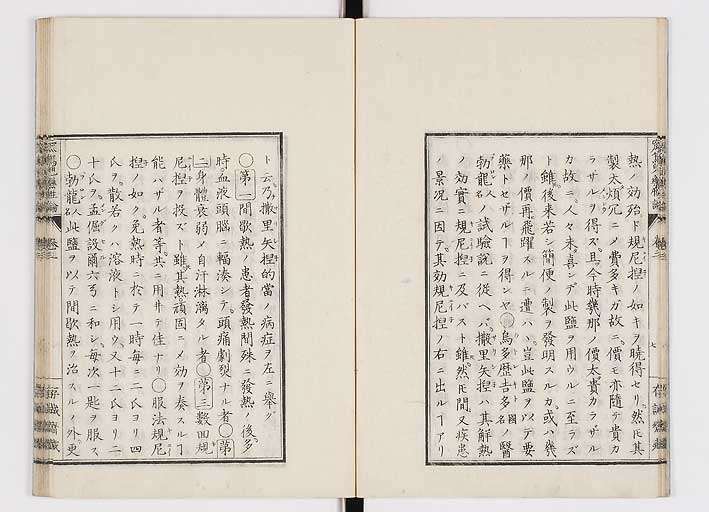 熱ノ効殆ド規尼捏ノ如キヲ曉得セリ。然𪜈其
製太煩冗ニメ費多キガ故ニ。價モ亦隨テ貴カ
ラザルヲ得ズ。且今時幾那ノ價太貴カラザル
カ故ニ。人々未喜ンデ此鹽ヲ用ウルニ至ラズ
ト雖後來若シ簡便ノ製ヲ發明スルカ或ハ幾
那ノ價再飛躍スルニ遭ハヾ。豈此鹽ヲ以テ要
藥トセザルヿヲ得ンヤ○烏多歴吉多國名ノ醫
勃龍人名ノ試驗説ニ從ヘバ。撒里矢捏ハ其解熱
ノ効實ニ規尼捏ニ及バスト雖。然𪜈間又疾患
ノ景况ニ因テ。其効規尼捏ノ右ニ出ルヿアリ
七
ト云乃撒里矢捏的當ノ病症ヲ左ニ擧グ
○第一間歇熱ノ患者發熱間殊ニ發熱ノ後。多
時。血液頭腦ニ輻湊シテ。頭痛劇烈ナル者○第
二身體衰弱メ自汗淋漓タル者○第三數回規
尼捏ヲ投ズト雖其熱頑固ニメ効ヲ奏スルヿ
能ハザル者等。共ニ用井テ佳ナリ○服法規尼
捏ノ如ク。免熱時ニ於テ一時毎ニ二氏ヨリ四
氏ヲ。散若クハ溶液トシ用ウ。又十二氏ヨリ二
十氏ヲ。孟倔設爾六弓ニ和シ。毎次一匙ヲ服ス
○勃龍人名此鹽ヲ以テ間歇熱ヲ治スルノ外。更